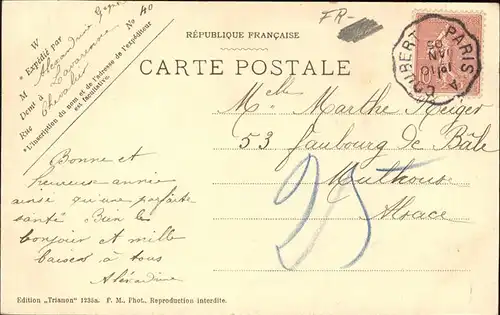 FR-
RÉPUBLIQUE FRANÇAISE
CARTE POSTALE
PARIS A
COUBERT
JANV
05
M
Expédié par Alexandrine
No 40
M
Demt à Lavarenne
Rue Chevalier
*L'inscription du nom et de l'adresse de l'expéditeur
est facultative.
Melle Marthe Meiger
53 Faubourg de Bâle
Mulhouse
Alsace
25
Bonne et
heureuse année
ainsi qu'une parfaite
santé Bien le
bonjour et mille
baisers à tous
Alexandrine
Edition „Trianon" 1235a. P. M., Phot. Reproduction interdite.